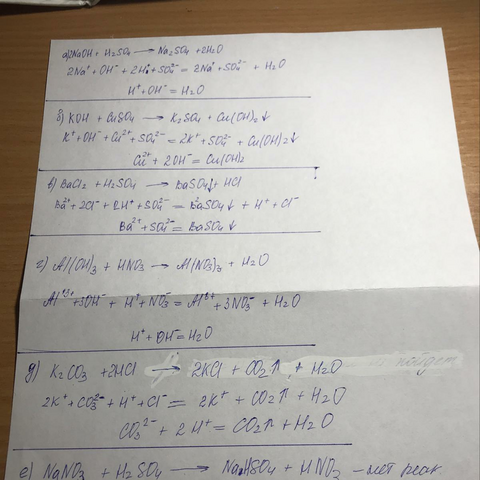 а) 2NaOH + H₂SO₄ → Na₂SO₄ + 2H₂O
2Na⁺ + OH⁻ + 2H⁺ + SO₄²⁻ = 2Na⁺ + SO₄²⁻ + H₂O
H⁺ + OH⁻ = H₂O
б) KOH + CuSO₄ → K₂SO₄ + Cu(OH)₂↓
K⁺ + OH⁻ + Cu²⁺ + SO₄²⁻ = 2K⁺ + SO₄²⁻ + Cu(OH)₂↓
Cu²⁺ + 2OH⁻ = Cu(OH)₂
в) BaCl₂ + H₂SO₄ → BaSO₄↓ + HCl
Ba²⁺ + 2Cl⁻ + 2H⁺ + SO₄²⁻ = BaSO₄↓ + H⁺ + Cl⁻
Ba²⁺ + SO₄²⁻ = BaSO₄↓
г) Al(OH)₃ + HNO₃ → Al(NO₃)₃ + H₂O
Al³⁺ + 3OH⁻ + H⁺ + NO₃⁻ = Al³⁺ + 3NO₃⁻ + H₂O
H⁺ + OH⁻ = H₂O
д) K₂CO₃ + 2HCl → 2KCl + CO₂↑ + H₂O
2K⁺ + CO₃²⁻ + H⁺ + Cl⁻ = 2K⁺ + CO₂↑ + H₂O
CO₃²⁻ + 2H⁺ = CO₂↑ + H₂O
е) NaNO₃ + H₂SO₄ → NaHSO₄ + HNO₃ – нет реак